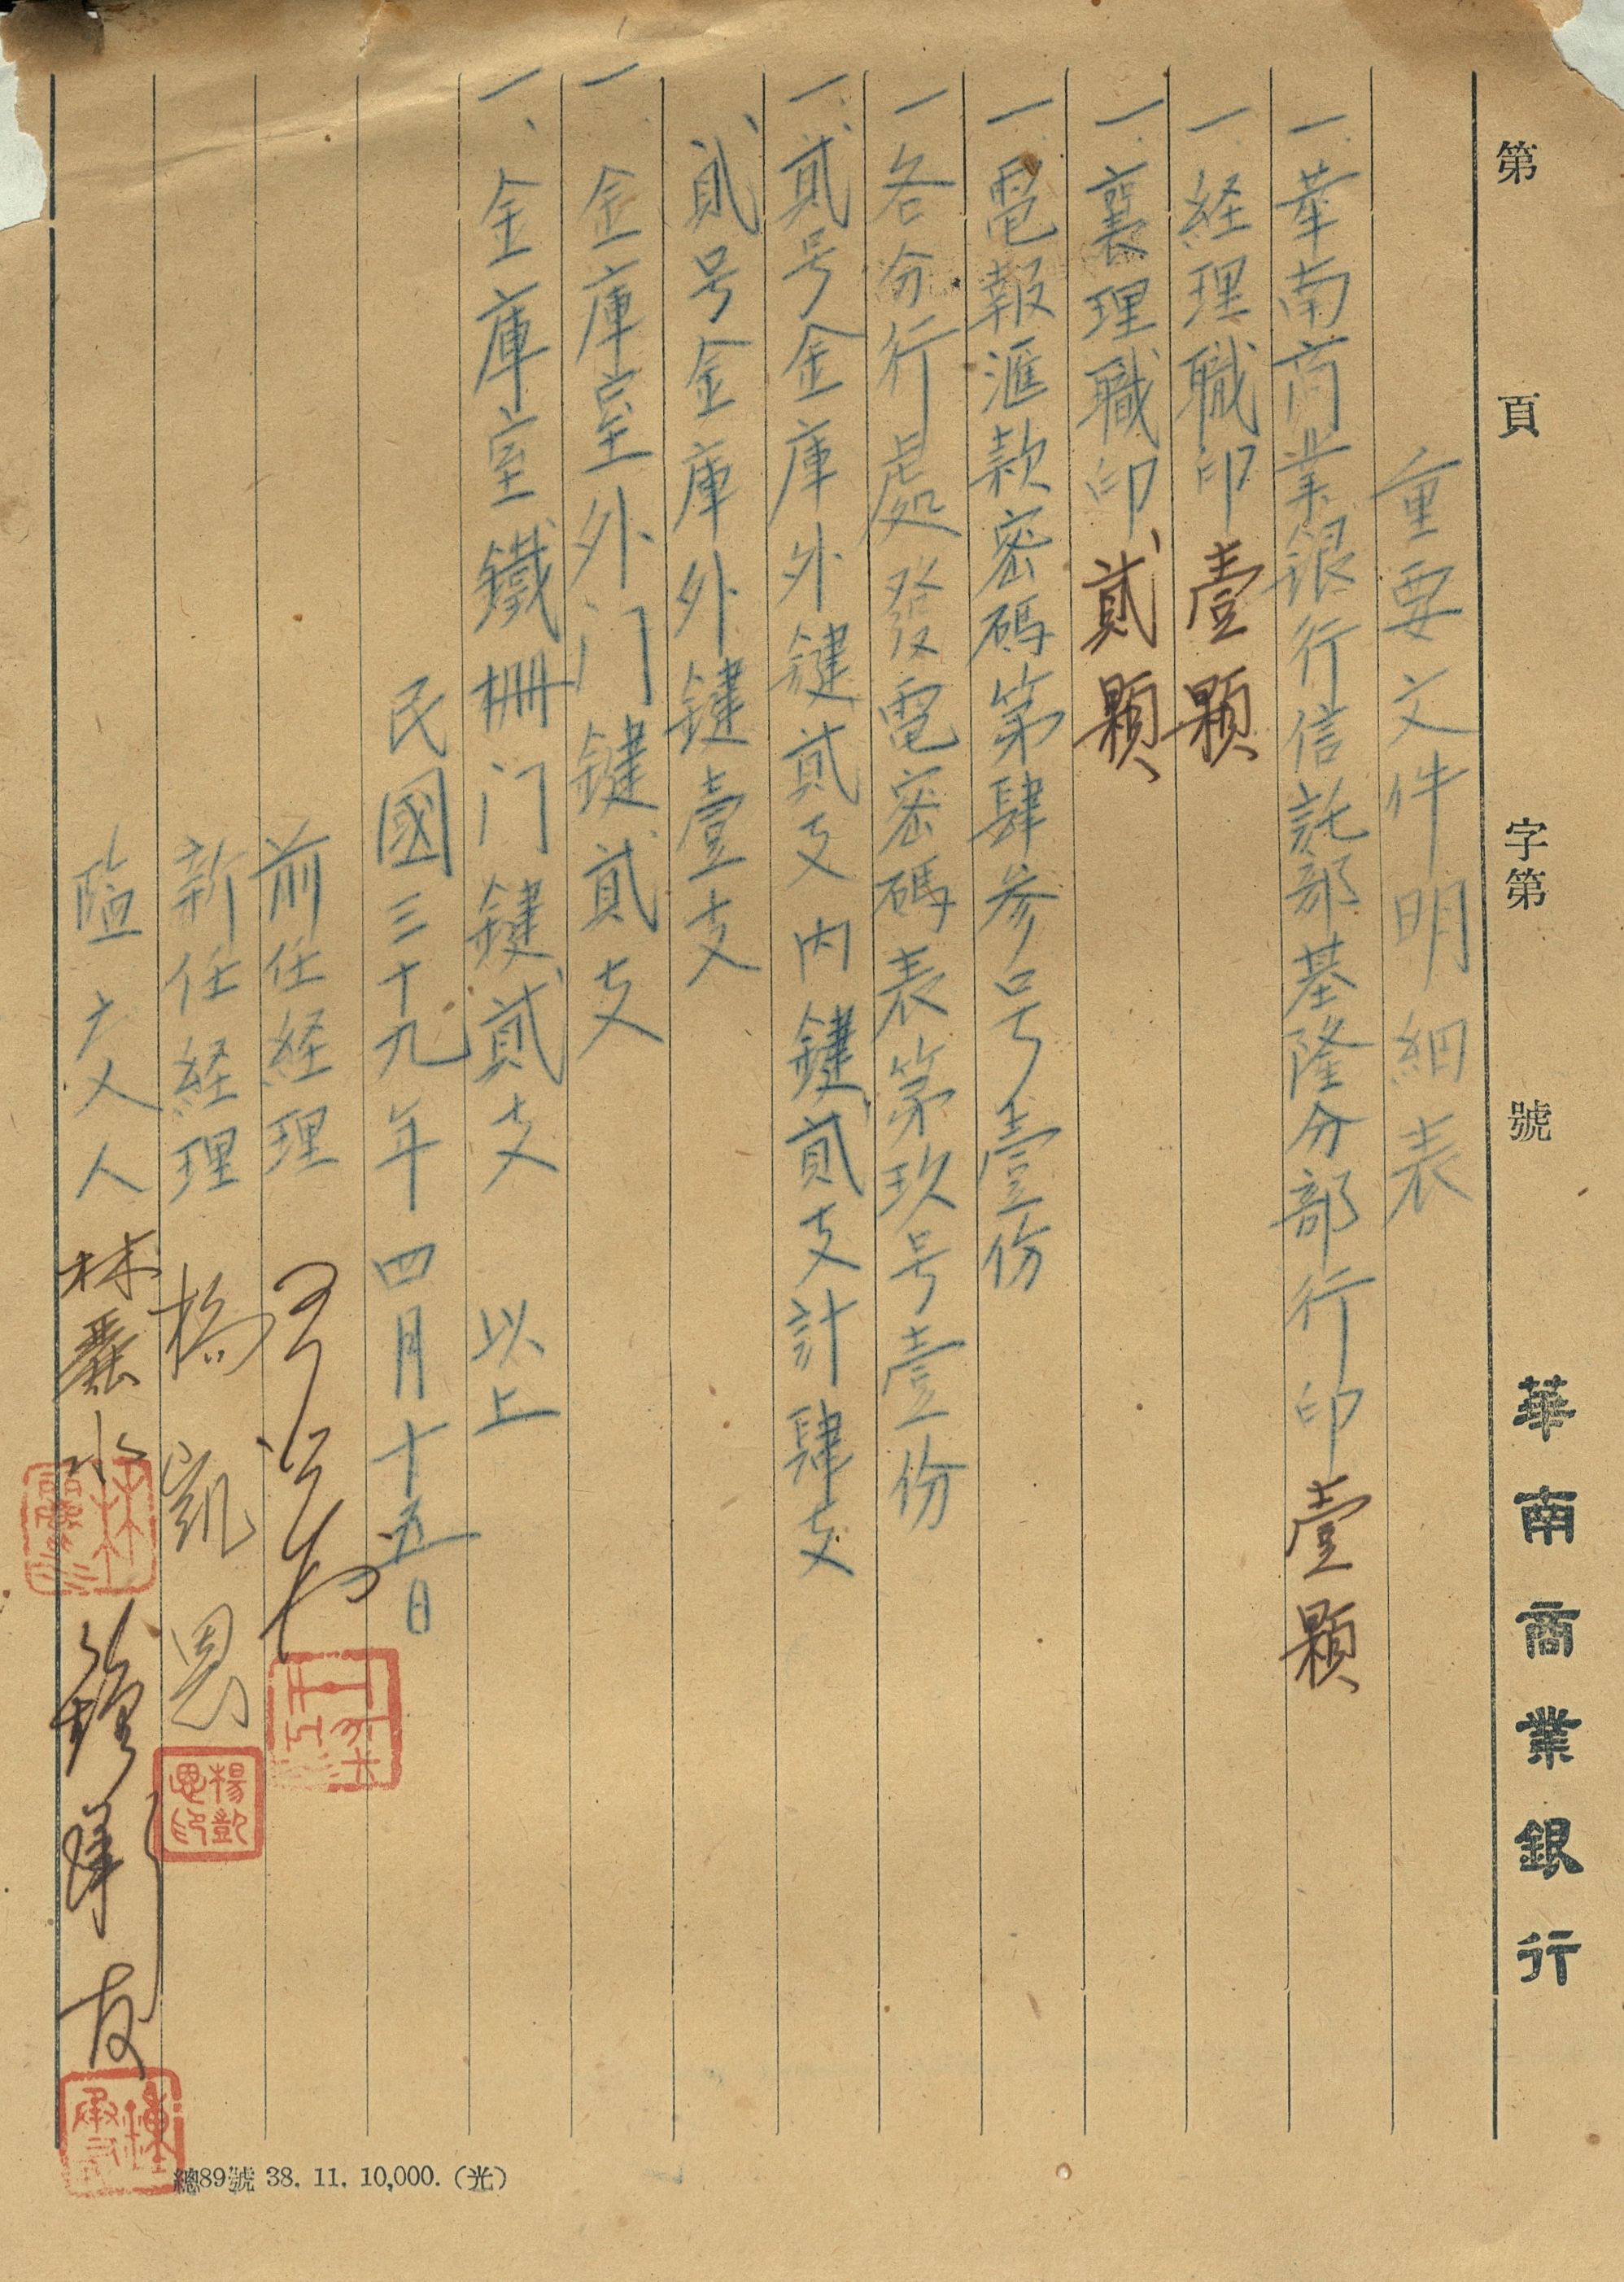 第 頁 字第 號 華南商業銀行
重要文件明細表
一.華南商業銀行信託部基隆分部行印壹顆
一.経理職印壹顆
一.襄理職印貳顆
一.電報滙款密碼第肆参号壹份
一各分行處發電密碼表第玖号壹份
一、貳号金庫外鍵貳支内鍵貳支計肆支
貳号金庫外鍵壹支
一.金庫室外门鍵貳支
一、金庫室鐵柵门鍵貳支 以上
民國三十九年四月十五日
前任経理
新任経理 楊凱恩
楊凱恩印
監交人 林
總89號 38. 11. 10,000. (光)